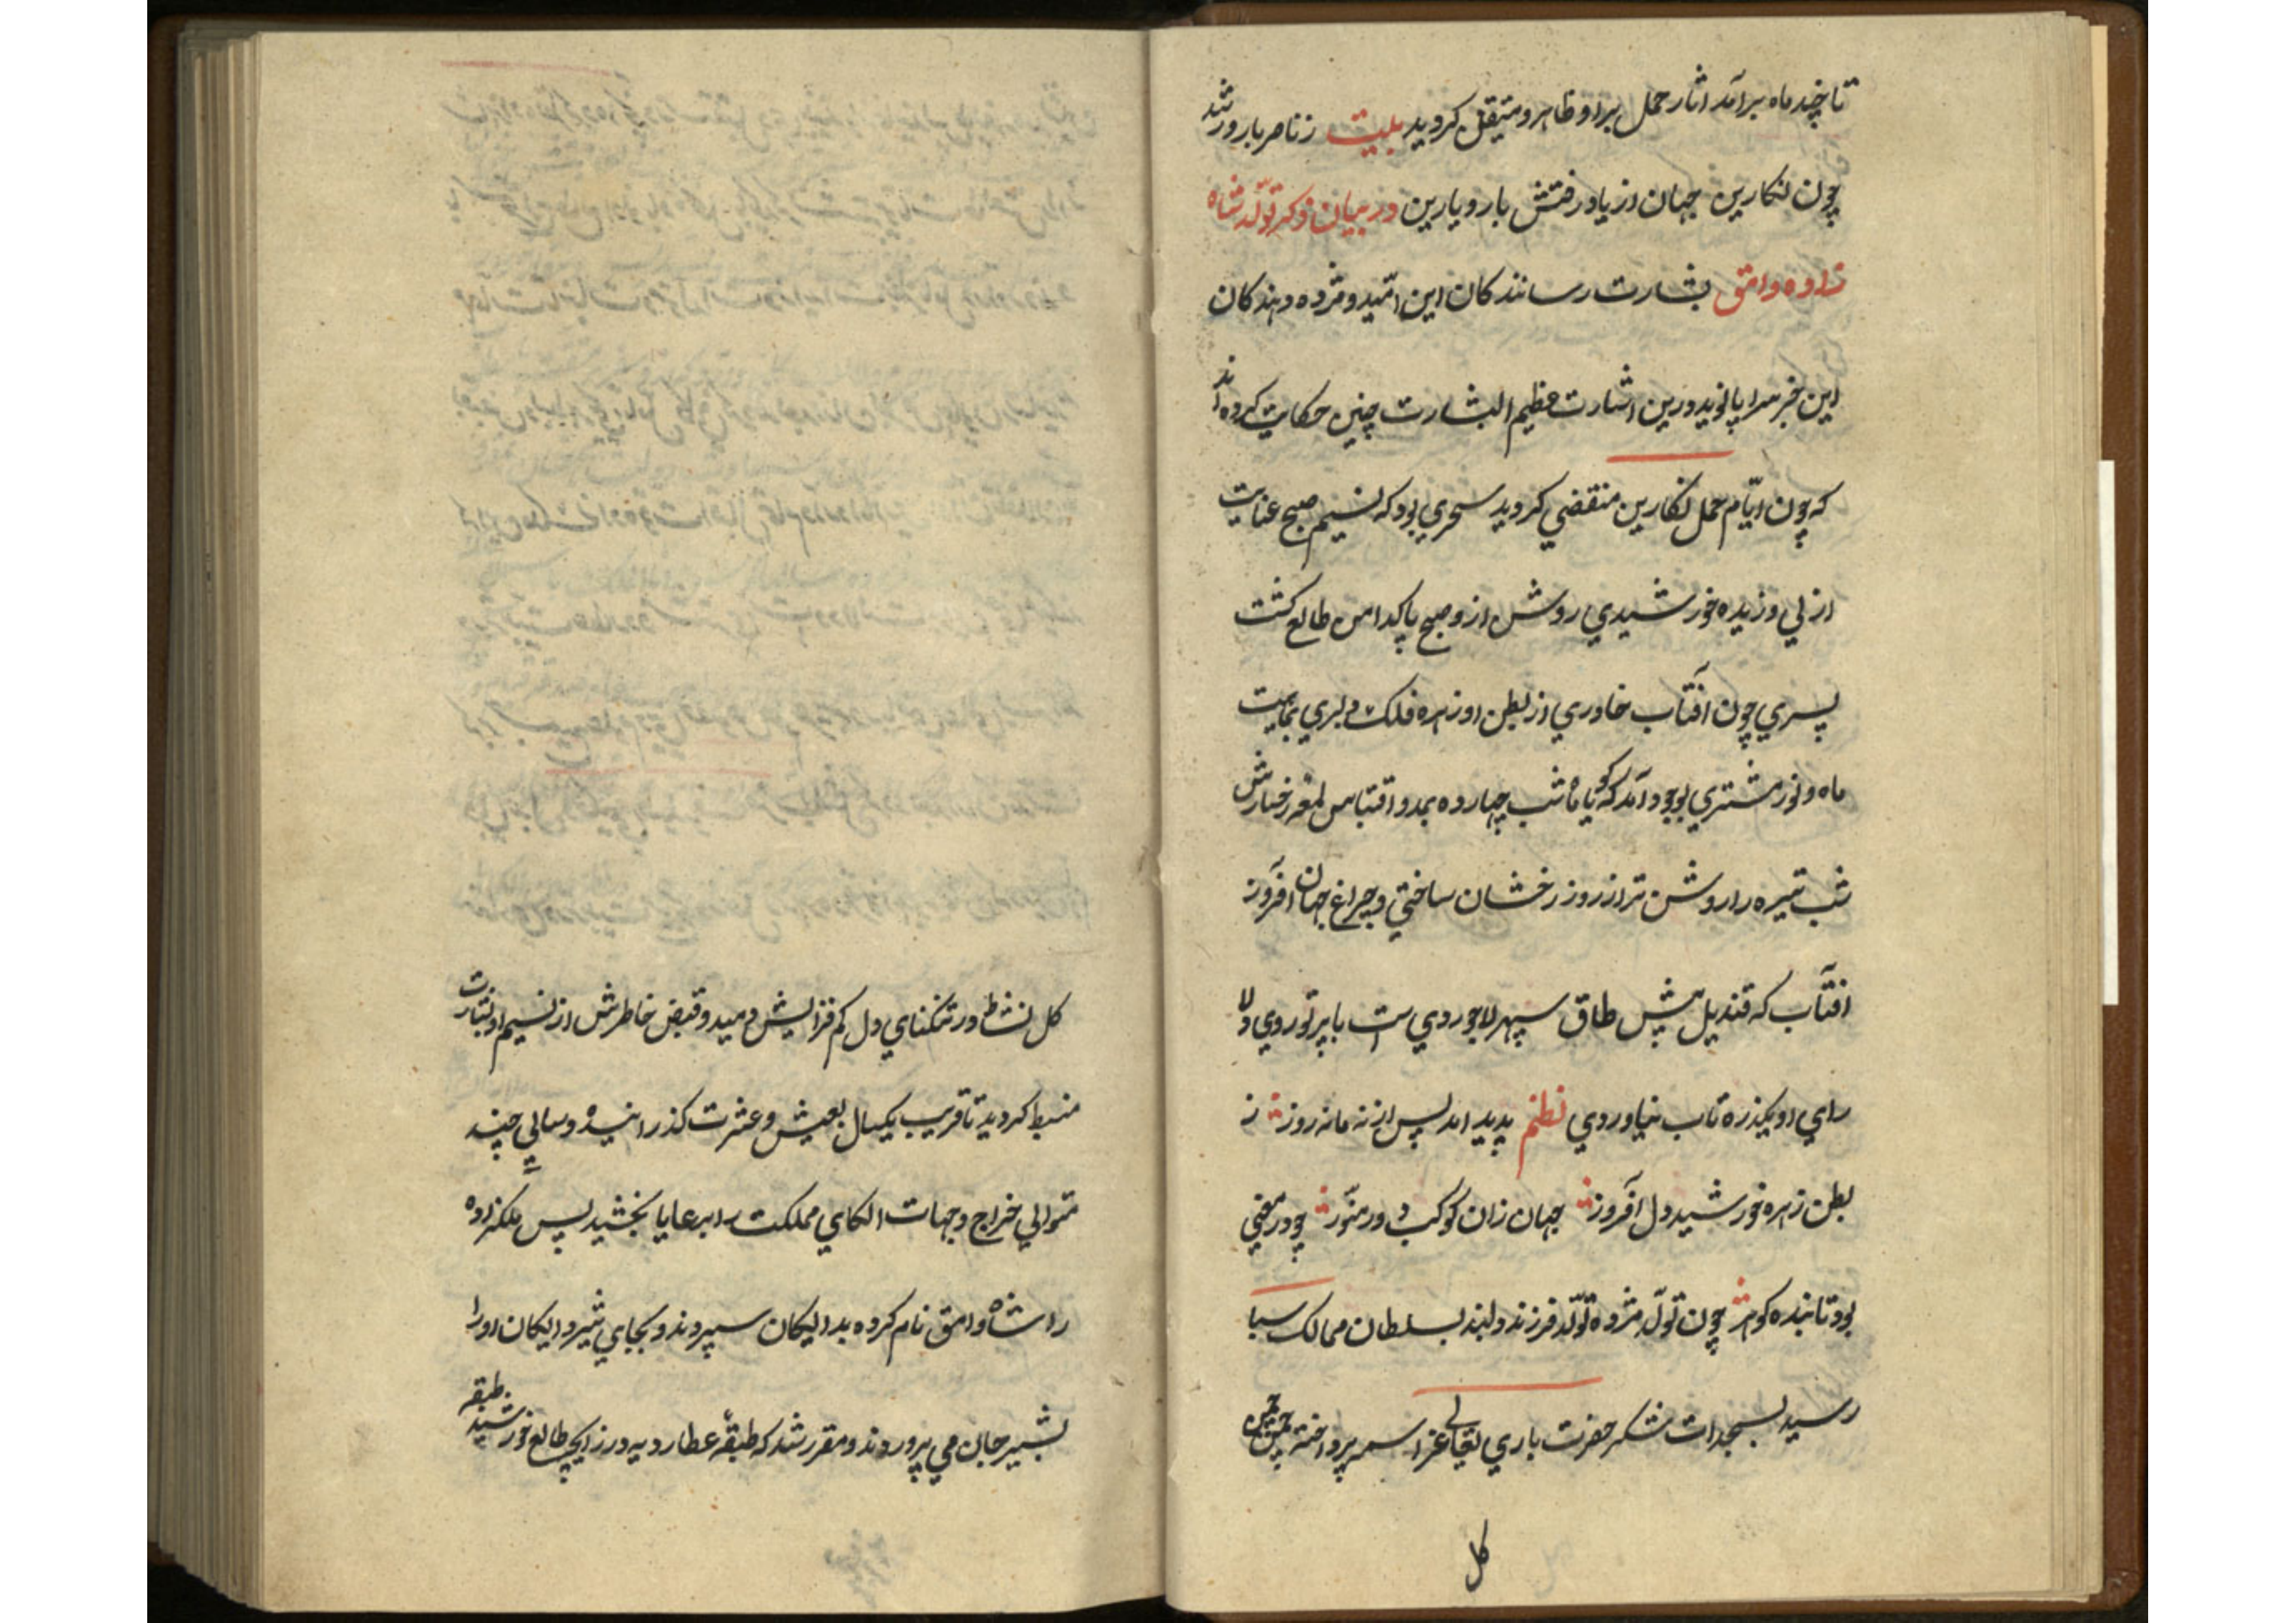 تا چند ماه برآمد اثار حمل براو ظاهر و متیقن کردید بیت ز ناصر بارور شد
چون نکارین جهان از یاد رفتش بار و یارین در بیان ذکر تولّد شاه
زاده وامق بشارت رسانندکان این امّید و مژده دهندکان
این خبر سراپا نوید درین اشارت عظیم البشارت چنین حکایت کرده اند
که چون ایّام حمل نکارین منقضي کردید سحري بود که نسیم صبح عنایت
ازلي وزیده خورشیدي روشن ازو صبح پاکدامن طالع کشت
پسري چون آفتاب خاوري از بطن او زهره فلک دلبري
ماه و نور مشتري بوجود آمد که کویا ماه شب چهارده بمدد اقتباس لمعه رخسارش
شب تیره را روشن تر از روز رخشان ساختي و چراغ جهان افروز
افتآب که قندیل پیش طاق سپهر لاجوردي ست با پرتو روي ولا
راي او یکذره تاب نیاوردي نظم پدید امد پس از نه مانه روز ز
بطن زهره خورشید دل آفروز جهان زان کوکب در منّور چو در معني
بود تابنده کوهر چون تولّد مژده تولّد فرزند دلبند بسلطان ممالک سبا
رسید بسجدات شکر حضرت باري تعالي عزاسمه پرداخته چمن چمن
کل
کل نشاط در تنکناي دل کم فزایش دمید و قبض خاطرش از نسیم او بشارت
منبط کردید تا قریب یکسال بعیش و عشرت کذرانیده و سالي چند
متوالي خراج و جهات الکاي مملکت را برعایا بخشید پس ملکزاده
را شاه وامق نام کرده بدایکان سپردند و بجاي شیر دایکان اورا
بشیر جان مي پروردند و مقرر شد که طبقه عطاردیه در زایچه طالع خورشید طبقه